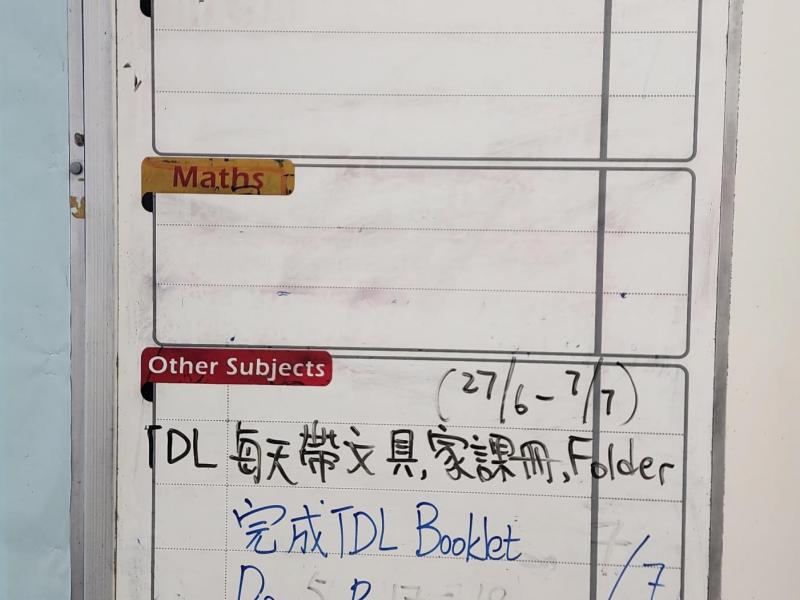 Maths
Other Subjects
(27/6 - 7/7)
TDL 每天帶文具,家課冊,Folder
完成TDL Booklet
/7